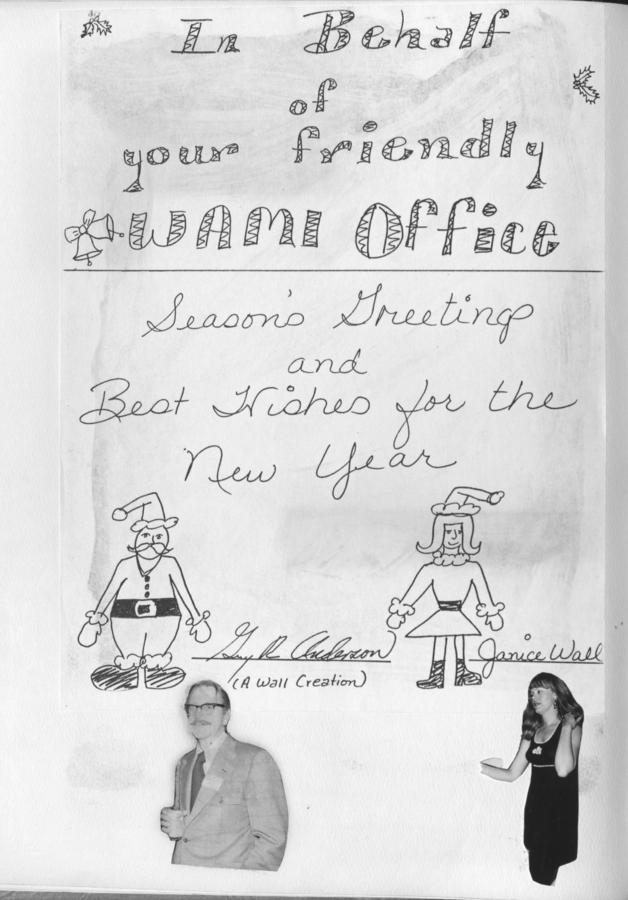 In Behalf
of
your friendly
WAMI Office
Season's Greetings
and
Best Wishes for the
New Year
Guy R Anderson
(A Wall Creation)
Janice Wall